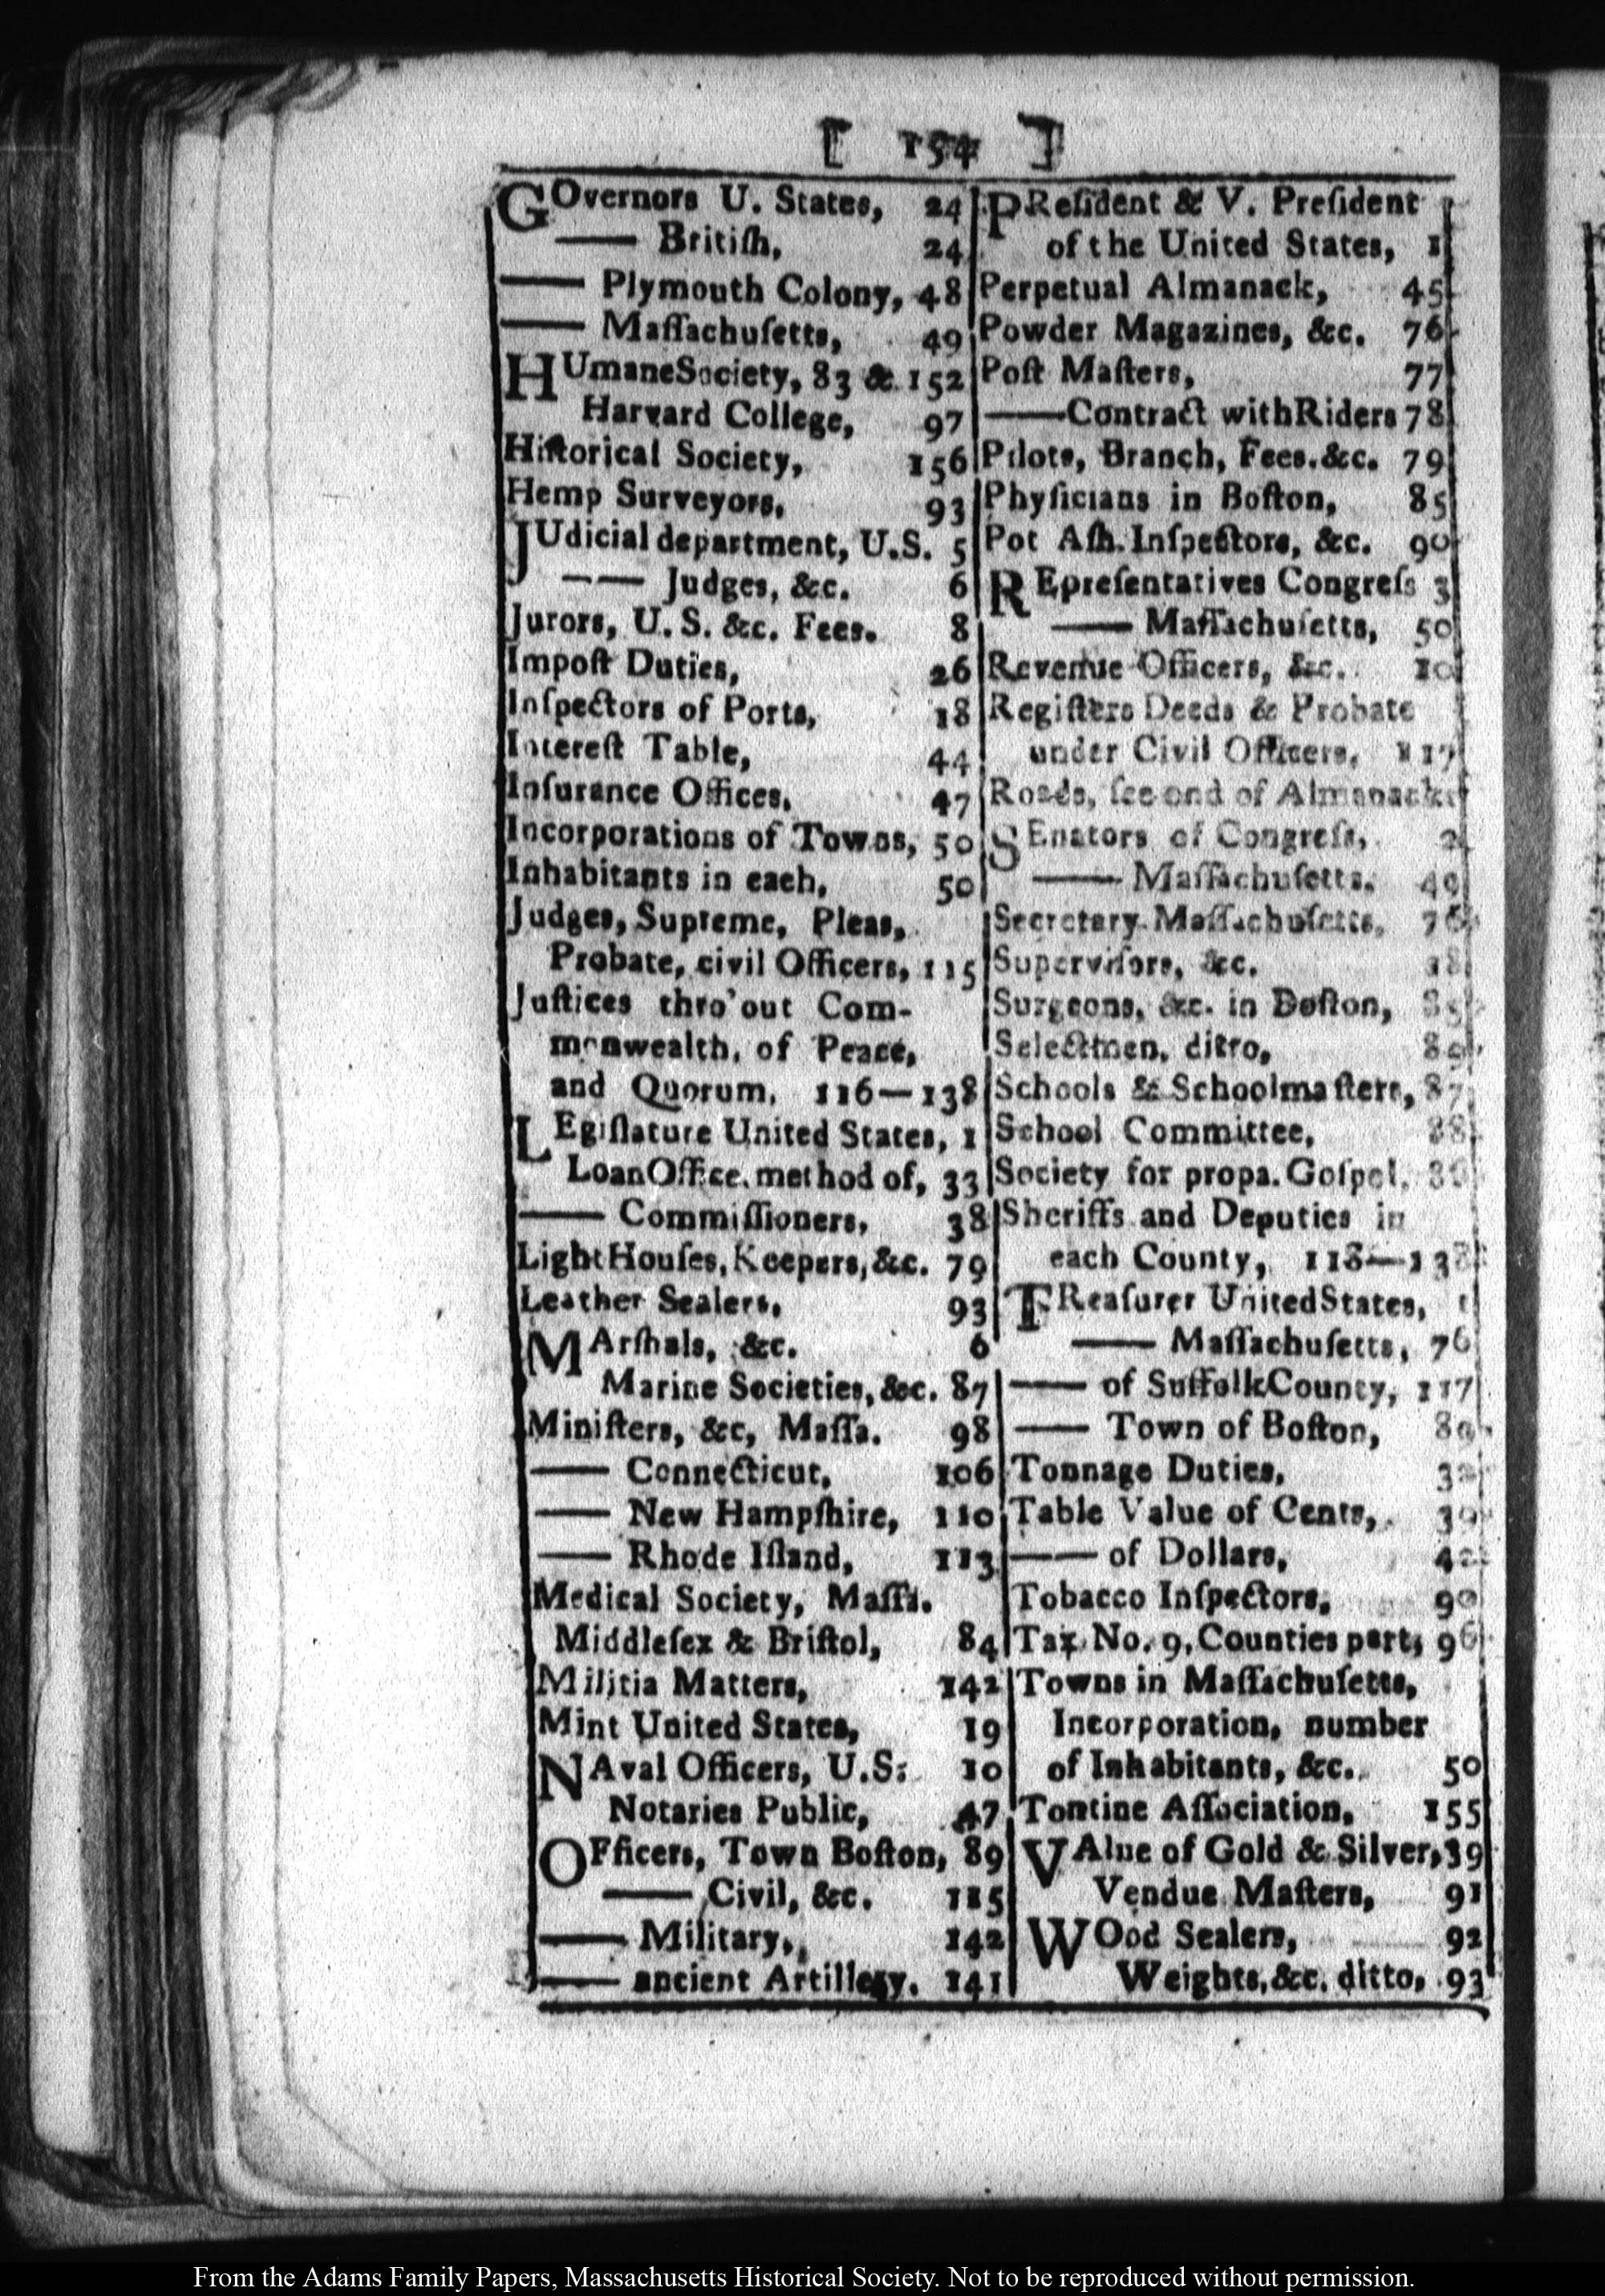 [ 154 ]
GOvernors U. States, 24
—— Britiſh, 24
—— Plymouth Colony, 48
—— Maſſachuſetts, 49
HUmaneSociety, 83 & 152
Harvard College, 97
Hiſtorical Society, 156
Hemp Surveyors, 93
JUdicial department, U.S. 5
—— Judges, &c. 6
Jurors, U. S. &c. Fees. 8
Impoſt Duties, 26
Inſpectors of Ports, 18
Intereſt Table, 44
Inſurance Offices, 47
Incorporations of Towns, 50
Inhabitants in each, 50
Judges, Supreme, Pleas,
Probate, civil Officers, 115
Juſtices thro'out Com-
monwealth, of Peace,
and Quorum, 116—138
LEgiſlature United States, 1
LoanOffice, method of, 33
—— Commiſſioners, 38
Light Houſes, Keepers, &c. 79
Leather Sealers, 93
MArſhals, &c. 6
Marine Societies, &c. 87
Miniſters, &c, Maſſa. 98
—— Connecticut, 106
—— New Hampſhire, 110
—— Rhode Iſland, 113
Medical Society, Maſſa.
Middleſex & Briſtol, 84
Militia Matters, 142
Mint United States, 19
NAval Officers, U.S. 10
Notaries Public, 47
OFficers, Town Boſton, 89
—— Civil, &c. 115
—— Military, 142
—— ancient Artillery. 141
PReſident & V. Preſident
of the United States, 1
Perpetual Almanack, 45
Powder Magazines, &c. 76
Poſt Maſters, 77
—— Contract withRiders 78
Pilots, Branch, Fees. &c. 79
Phyſicians in Boſton, 85
Pot Aſh. Inſpectors, &c. 90
REpreſentatives Congreſs 3
—— Maſſachuſetts, 50
Revenue Officers, &c. 10
Regiſters Deeds & Probate
under Civil Officers, 117
Roads, ſee end of Almanack.
SEnators of Congreſs, 2
—— Maſſachuſetts, 49
Secretary Maſſachuſetts, 76
Superviſors, &c. 18
Surgeons, &c. in Boſton, 85
Selectmen, ditto, 89
Schools & Schoolmaſters, 87
School Committee, 88
Society for propa. Goſpel,
Sheriffs and Deputies in
each County, 118—138
TReaſurer UnitedStates, 1
—— Maſſachuſetts, 76
—— of SuffolkCounty, 117
—— Town of Boſton, 89
Tonnage Duties, 32
Table Value of Cents, 39
—— of Dollars, 42
Tobacco Inſpectors, 90
Tax No. 9, Counties part, 96
Towns in Maſſachuſetts,
Incorporation, number
of Inhabitants, &c. 50
Tontine Aſſociation, 155
VAlue of Gold & Silver, 39
Vendue Maſters, 91
WOod Sealers, 92
Weights, &c. ditto, 93
From the Adams Family Papers, Massachusetts Historical Society. Not to be reproduced without permission.